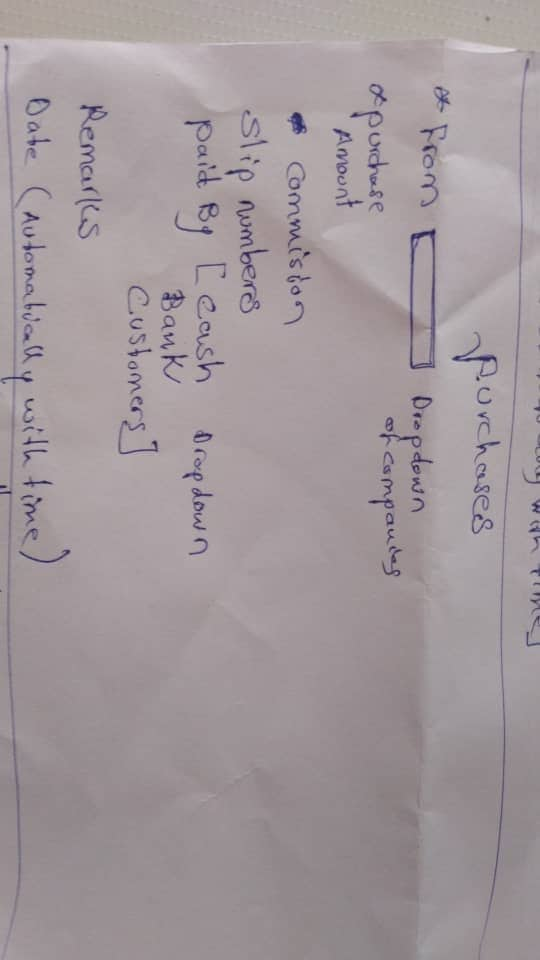 with time]
Purchases
* From Dropdown
of companies
* purchase
Amount
* Commision
Slip numbers
paid By [cash Dropdown
Bank
Customers]
Remarks
Date (Automatically with time)